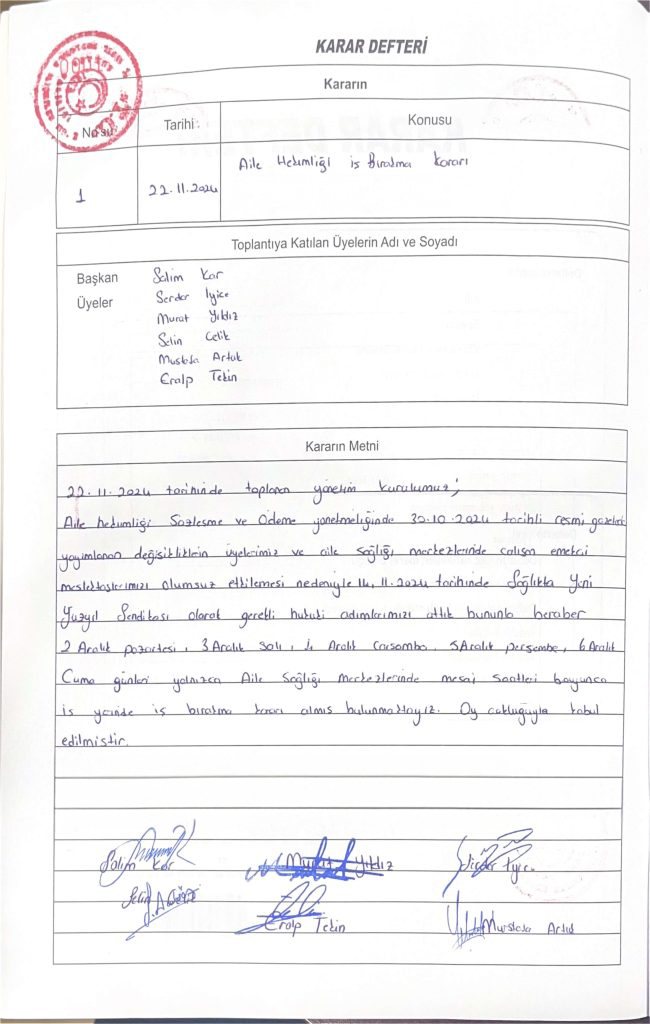 KARAR DEFTERİ
Kararın
No'su Tarihi : Konusu
1 22.11.2024 Aile Hekimliği iş Bırakma kararı
Toplantıya Katılan Üyelerin Adı ve Soyadı
Başkan Salim Kar
Üyeler Serdar İyice
Murat Yıldız
Selin Çelik
Mustafa Artuk
Eralp Tekin
Kararın Metni
22.11.2024 tarihinde toplanan yönetim kurulumuz;
Aile hekimliği Sözleşme ve Ödeme yönetmeliğinde 30.10.2024 tarihli resmi gazetede
yayımlanan değişikliklein üyelerimiz ve aile sağlığı merkezlerinde çalışan emekçi
meslektaşlarımızı olumsuz etkilemesi nedeniyle 14.11.2024 tarihinde Sağlıkta Yeni
Yüzyıl Sendikası olarak gerekli hukuki adımlarımızı attık bununla beraber
2 Aralık pazartesi, 3 Aralık salı, 4 Aralık Çarşamba, 5 Aralık perşembe, 6 Aralık
Cuma günleri yalnızca Aile Sağlığı merkezlerinde mesai saatleri boyunca
iş yerinde iş bırakma kararı almış bulunmaktayız. Oy çokluğuyla kabul
edilmiştir.
Salim Kar Murat Yıldız Serdar İyice
Selin
Eralp Tekin Mustafa Artuk